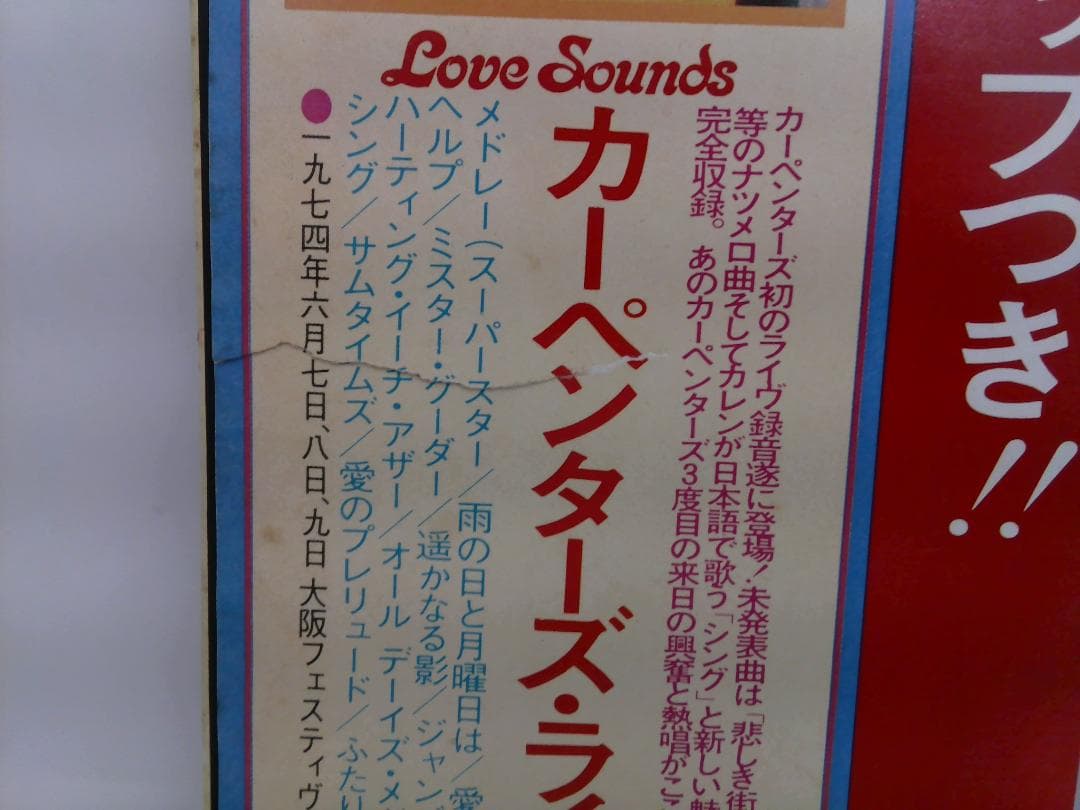 Love Sounds
フつき!!
カーペンターズ初のライヴ録音遂に登場!未発表曲は「悲しき街
等のナツメロ曲そしてカレンが日本語で歌う「シング」と新しい魅
完全収録。あのカーペンターズ3度目の来日の興奮と熱唱がここ
カーペンターズ・ライ
メドレー(スーパースター/雨の日と月曜日は/愛
ヘルプ/ミスター・グーダー/遥かなる影/ジャン
ハーティング・イーチ・アザー/オール デーイズ・メ
シング/サムタイムズ/愛のプレリュード/ふたり
●一九七四年六月七日、八日、九日 大阪フェスティヴ